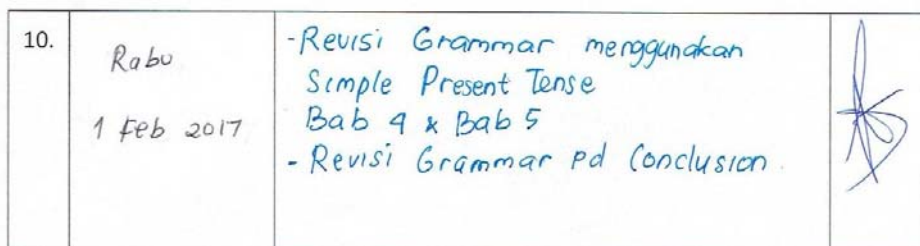 10.
Rabu
1 Feb 2017
- Revisi Grammar menggunakan
Simple Present Tense
Bab 4 & Bab 5
- Revisi Grammar pd Conclusion.